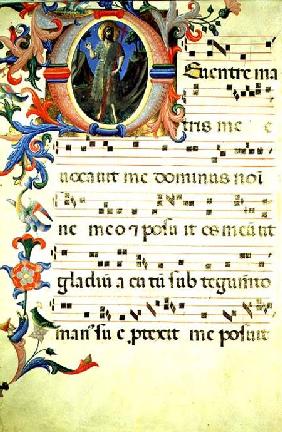 Euentre ma
tris me e
uocauit me dominus noi
ne meo ⁊ posu it os meu ut
gladiu a cu tu sub teguinto
man' su e ꝓtexit me posuit